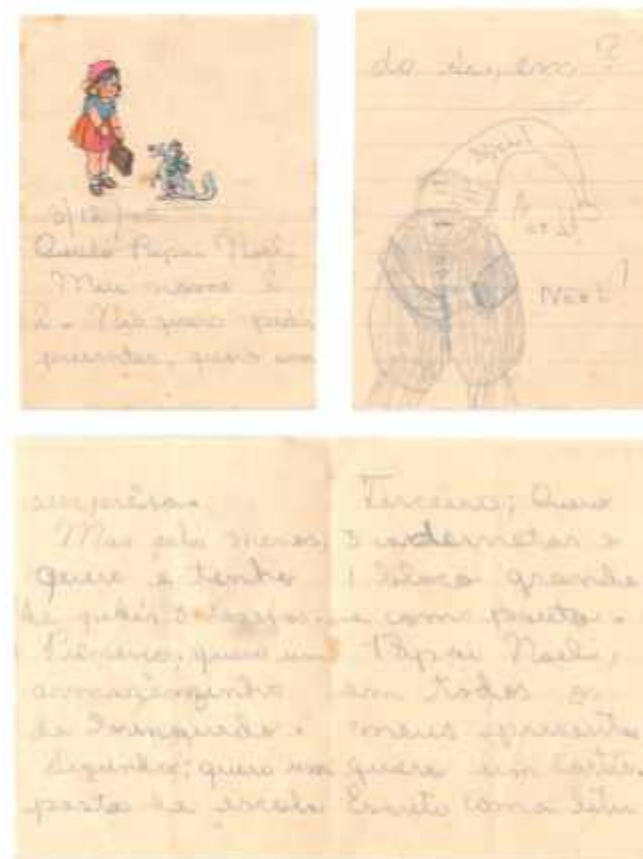 Querido Papai Noel.
Meu nome é
Não quero pedir
presentes, quero uma
surprêsa.
Mas pelo menos,
quero e tenho
de pedir
Primeiro, quero um
armazenzinho
de brinquedo.
Segundo; quero uma
pasta de escola
Terceiro; Quero
3 cadernetas e
1 bloco grande
e com pauta.
Papai Noel,
em todos os
meus presentes
quero um cartão
Escrito com a letra
do
Papai
Noel!